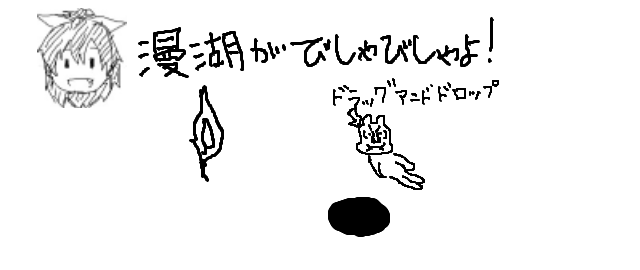 漫湖がびしゃびしゃよ!
ドラッグアンドドロップ